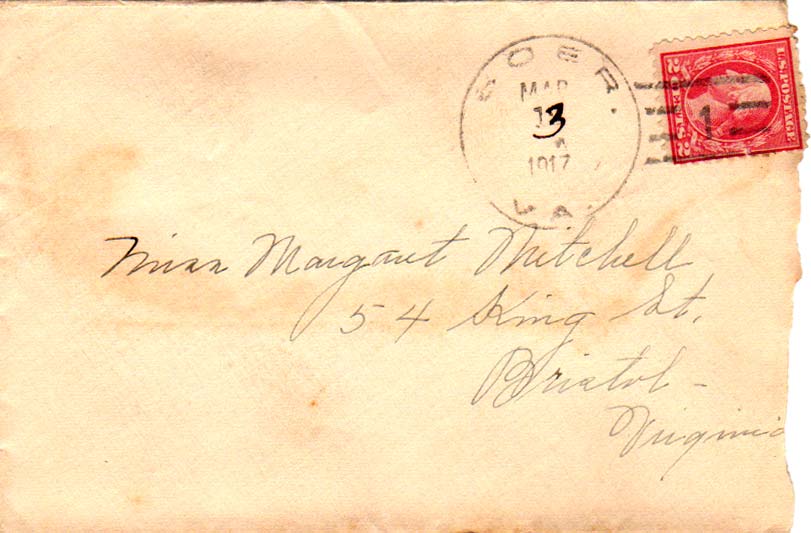 MAR
13
1917
U.S.POSTAGE
2 CENTS 2
1
Miss Margaret Mitchell
54 King St.
Bristol -
Virginia